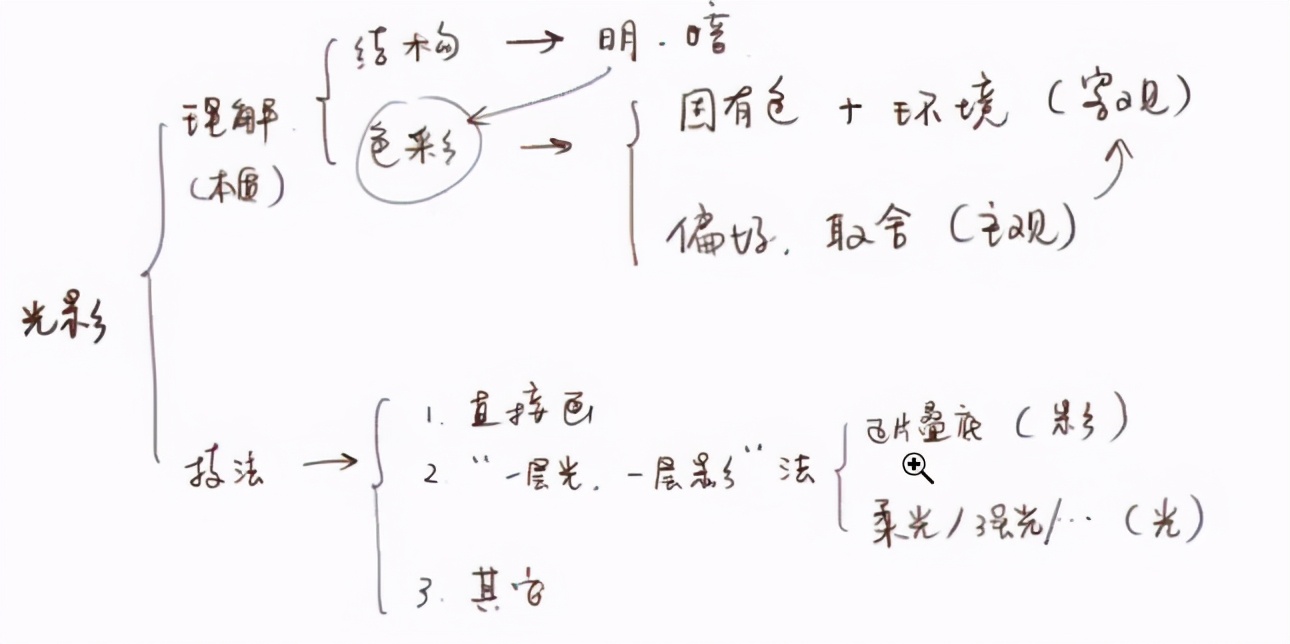 结构 → 明.暗
理解
(本质)
色彩 →
固有色 + 环境 (客观)
偏好. 取舍 (主观)
光影
技法 →
1. 直接画
2 "一层光. 一层影" 法
叠底 (影)
柔光/强光/… (光)
3. 其它